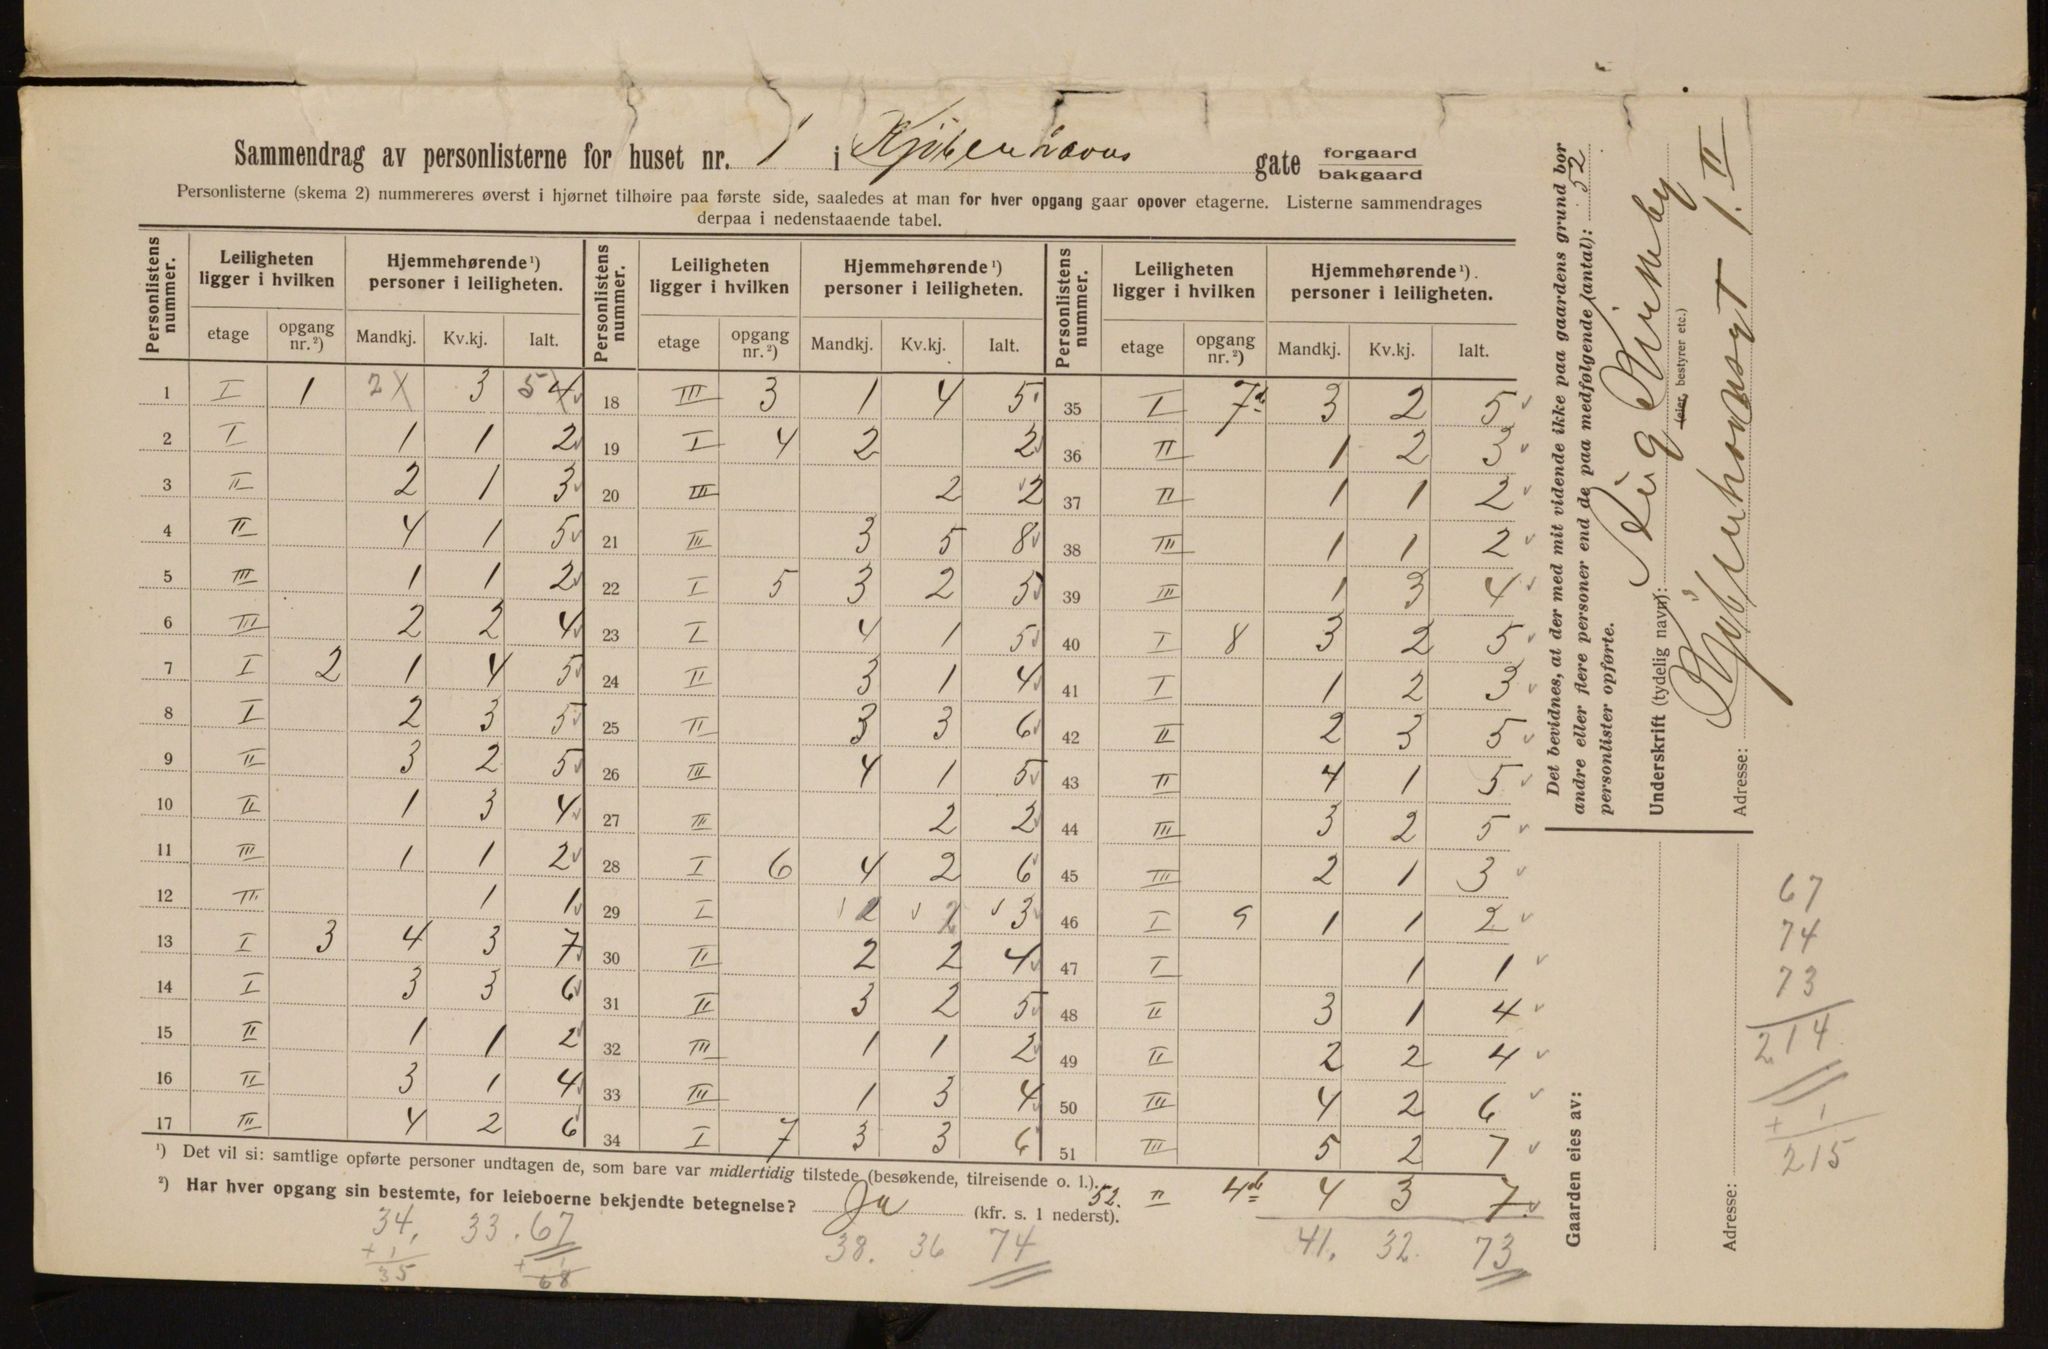 Sammendrag av personlisterne for huset nr. 1 i Kjøbenhavns gate forgaard bakgaard
Personlisterne (skema 2) nummereres øverst i hjørnet tilhøire paa første side, saaledes at man for hver opgang gaar opover etagerne. Listerne sammendrages
derpaa i nedenstaaende tabel.
Personlistens nummer. Leiligheten ligger i hvilken Hjemmehørende ¹) personer i leiligheten. Personlistens nummer. Leiligheten ligger i hvilken Hjemmehørende ¹) personer i leiligheten. Personlistens nummer. Leiligheten ligger i hvilken Hjemmehørende ¹). personer i leiligheten.
etage opgang nr. ²) Mandkj. Kv.kj. Ialt. etage opgang nr. ²) Mandkj. Kv.kj. Ialt. etage opgang nr. ²) Mandkj. Kv.kj. Ialt.
1 I 1 2 1 3 5 4 18 III 3 1 4 5 35 I 7b 3 2 5
2 I 1 1 2 19 I 4 2 2 36 II 1 2 3
3 II 2 1 3 20 III 2 2 37 II 1 1 2
4 II 4 1 5 21 III 3 5 8 38 III 1 1 2
5 III 1 1 2 22 I 5 3 2 5 39 III 1 3 4
6 III 2 2 4 23 I 4 1 5 40 I 8 3 2 5
7 I 2 1 4 5 24 II 3 1 4 41 I 1 2 3
8 I 2 3 5 25 II 3 3 6 42 II 2 3 5
9 II 3 2 5 26 III 4 1 5 43 II 4 1 5
10 II 1 3 4 27 III 2 2 44 III 3 2 5
11 III 1 1 2 28 I 6 4 2 6 45 III 2 1 3
12 III 1 1 29 I 2 2 3 46 I 9 1 1 2
13 I 3 4 3 7 30 II 2 2 4 47 I 1 1
14 I 3 3 6 31 II 3 2 5 48 II 3 1 4
15 II 1 1 2 32 III 1 1 2 49 II 2 2 4
16 II 3 1 4 33 III 1 3 4 50 III 4 2 6
17 III 4 2 6 34 I 7 3 3 6 51 III 5 2 7
¹) Det vil si: samtlige opførte personer undtagen de, som bare var midlertidig tilstede (besøkende, tilreisende o. l.).
²) Har hver opgang sin bestemte, for leieboerne bekjendte betegnelse? Ja (kfr. s. 1 nederst). 52. II 4b 4 3 7
34. 33. 67 38. 36 74 41. 32. 73
+ 1 + 1
35 68
Det bevidnes, at der med mit vidende ikke paa gaardens grund bor
andre eller flere personer end de paa medfølgende (antal): 52
personlister opførte.
Underskrift (tydelig navn):
(eier, bestyrer etc.)
Adresse: Kjøbenhavnsgt 1. II
Gaarden eies av:
Adresse:
67
74
73
214
+ 1
215